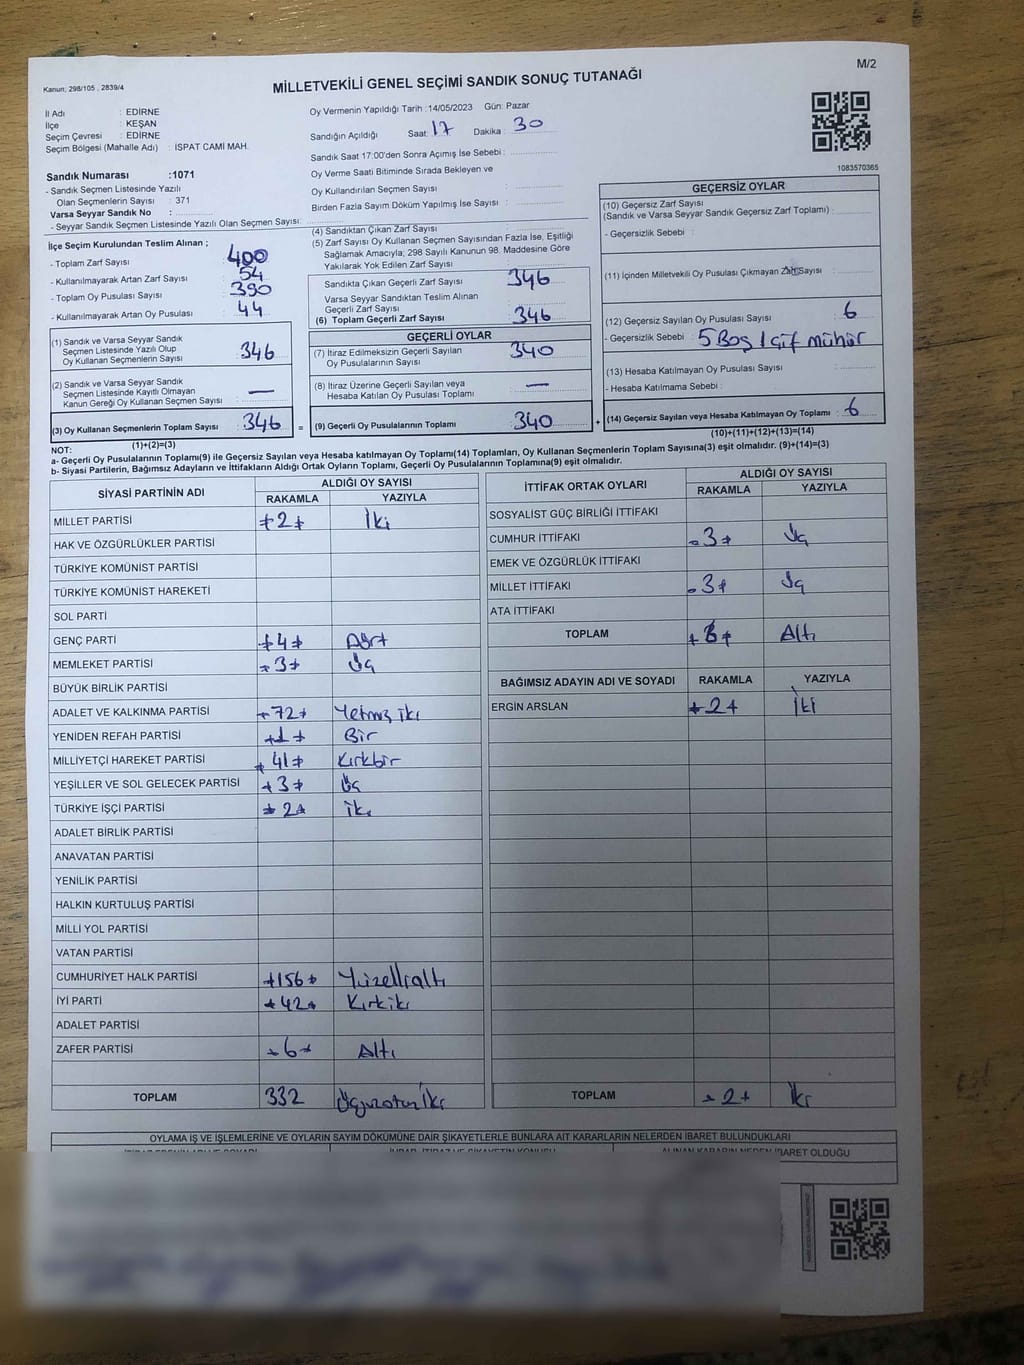 M/2
Kanun; 298/105 , 2839/4
MİLLETVEKİLİ GENEL SEÇİMİ SANDIK SONUÇ TUTANAĞI
İl Adı : EDİRNE
İlçe : KEŞAN
Seçim Çevresi : EDİRNE
Seçim Bölgesi (Mahalle Adı) : İSPAT CAMİ MAH.
Sandık Numarası :1071
- Sandık Seçmen Listesinde Yazılı
Olan Seçmenlerin Sayısı : 371
Varsa Seyyar Sandık No :
- Seyyar Sandık Seçmen Listesinde Yazılı Olan Seçmen Sayısı:
Oy Vermenin Yapıldığı Tarih :14/05/2023 Gün: Pazar
Sandığın Açıldığı Saat: 17 Dakika : 30
Sandık Saat 17:00'den Sonra Açımış İse Sebebi :
Oy Verme Saati Bitiminde Sırada Bekleyen ve
Oy Kullandırılan Seçmen Sayısı :
Birden Fazla Sayım Döküm Yapılmış İse Sayısı :
1083570365
İlçe Seçim Kurulundan Teslim Alınan ;
- Toplam Zarf Sayısı : 400
- Kullanılmayarak Artan Zarf Sayısı : 54
- Toplam Oy Pusulası Sayısı : 390
- Kullanılmayarak Artan Oy Pusulası : 44
(1) Sandık ve Varsa Seyyar Sandık
Seçmen Listesinde Yazılı Olup
Oy Kullanan Seçmenlerin Sayısı : 346
(2) Sandık ve Varsa Seyyar Sandık
Seçmen Listesinde Kayıtlı Olmayan
Kanun Gereği Oy Kullanan Seçmen Sayısı : —
(3) Oy Kullanan Seçmenlerin Toplam Sayısı : 346
(1)+(2)=(3)
(4) Sandıktan Çıkan Zarf Sayısı :
(5) Zarf Sayısı Oy Kullanan Seçmen Sayısından Fazla İse, Eşitliği
Sağlamak Amacıyla; 298 Sayılı Kanunun 98. Maddesine Göre
Yakılarak Yok Edilen Zarf Sayısı :
Sandıkta Çıkan Geçerli Zarf Sayısı : 346
Varsa Seyyar Sandıktan Teslim Alınan
Geçerli Zarf Sayısı :
(6) Toplam Geçerli Zarf Sayısı : 346
GEÇERLİ OYLAR
(7) İtiraz Edilmeksizin Geçerli Sayılan
Oy Pusulalarının Sayısı : 340
(8) İtiraz Üzerine Geçerli Sayılan veya
Hesaba Katılan Oy Pusulası Toplamı : —
= (9) Geçerli Oy Pusulalarının Toplamı : 340 +
GEÇERSİZ OYLAR
(10) Geçersiz Zarf Sayısı
(Sandık ve Varsa Seyyar Sandık Geçersiz Zarf Toplamı) :
- Geçersizlik Sebebi :
(11) İçinden Milletvekili Oy Pusulası Çıkmayan Zarf Sayısı :
(12) Geçersiz Sayılan Oy Pusulası Sayısı : 6
- Geçersizlik Sebebi : 5 Boş 1 çif mühür
(13) Hesaba Katılmayan Oy Pusulası Sayısı :
- Hesaba Katılmama Sebebi :
(14) Geçersiz Sayılan veya Hesaba Katılmayan Oy Toplamı : 6
(10)+(11)+(12)+(13)=(14)
NOT:
a- Geçerli Oy Pusulalarının Toplamı(9) ile Geçersiz Sayılan veya Hesaba katılmayan Oy Toplamı(14) Toplamları, Oy Kullanan Seçmenlerin Toplam Sayısına(3) eşit olmalıdır. (9)+(14)=(3)
b- Siyasi Partilerin, Bağımsız Adayların ve İttifakların Aldığı Ortak Oyların Toplamı, Geçerli Oy Pusulalarının Toplamına(9) eşit olmalıdır.
SİYASİ PARTİNİN ADI ALDIĞI OY SAYISI
RAKAMLA YAZIYLA
MİLLET PARTİSİ 2 İki
HAK VE ÖZGÜRLÜKLER PARTİSİ
TÜRKİYE KOMÜNİST PARTİSİ
TÜRKİYE KOMÜNİST HAREKETİ
SOL PARTİ
GENÇ PARTİ 4 Dört
MEMLEKET PARTİSİ 3 Üç
BÜYÜK BİRLİK PARTİSİ
ADALET VE KALKINMA PARTİSİ 72 Yetmiş iki
YENİDEN REFAH PARTİSİ 1 Bir
MİLLİYETÇİ HAREKET PARTİSİ 41 Kırkbir
YEŞİLLER VE SOL GELECEK PARTİSİ 3 Üç
TÜRKİYE İŞÇİ PARTİSİ 2 iki
ADALET BİRLİK PARTİSİ
ANAVATAN PARTİSİ
YENİLİK PARTİSİ
HALKIN KURTULUŞ PARTİSİ
MİLLİ YOL PARTİSİ
VATAN PARTİSİ
CUMHURİYET HALK PARTİSİ 156 Yüzellialtı
İYİ PARTİ 42 Kırkiki
ADALET PARTİSİ
ZAFER PARTİSİ 6 Altı
TOPLAM 332 Üçyüzotuziki
İTTİFAK ORTAK OYLARI ALDIĞI OY SAYISI
RAKAMLA YAZIYLA
SOSYALİST GÜÇ BİRLİĞİ İTTİFAKI
CUMHUR İTTİFAKI 3 Üç
EMEK VE ÖZGÜRLÜK İTTİFAKI
MİLLET İTTİFAKI 3 Üç
ATA İTTİFAKI
TOPLAM 6 Altı
BAĞIMSIZ ADAYIN ADI VE SOYADI RAKAMLA YAZIYLA
ERGİN ARSLAN 2 İki
TOPLAM 2 İki
OYLAMA İŞ VE İŞLEMLERİNE VE OYLARIN SAYIM DÖKÜMÜNE DAİR ŞİKAYETLERLE BUNLARA AİT KARARLARIN NELERDEN İBARET BULUNDUKLARI
ALINAN KARARIN NEDEN İBARET OLDUĞU